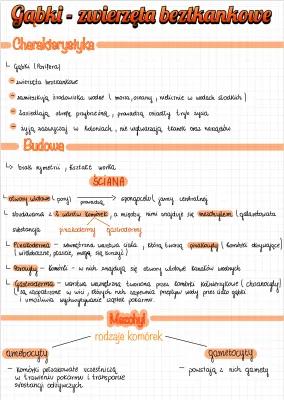 Gąbki - zwierzęta beztkankowe
Charakterystyka
Gąbki (Porifera)
zwierzęta beztkankowe
zamieszkują środowiska wodne (morza, oceany, nielicznie w wodach słodkich)
zasiedlają strefę przybrzeżną, prowadzą osiadły tryb życia
żyją zazwyczaj w koloniach, nie wytwarzają tkanek oraz narządów
Budowa
brak symetrii, kształt worka
ŚCIANA
otwory wlotowe (pory) prowadzą spongocelu / jamy centralnej
zbudowana z 2 warstw komórek, a między nimi znajduje się mezohylem (galaretowata
substancja pinakodermy gastrodermy
Pinakoderma - zewnętrzna warstwa ciała, którą tworzą pinakocyty (komórki okrywające)
(wielokątne, płaskie, mogą się kurczyć)
Porocyty - komórki - w nich znajdują się otwory wlotowe kanałów wodnych
Gastroderma - warstwa wewnętrzna, tworzona przez komórki kołnierzykowe (choanocyty)
są zaopatrzone w wici, których ruch zapewnia przepływ wody przez ciało gąbki
i umożliwia wychwytywanie cząstek pokarmu.
Mezohyl
rodzaje komórek
amebocyty gametocyty
- komórki pełzakowate uczestniczą
w trawieniu pokarmu i transporcie
substancji odżywczych
- powstają z nich gamety